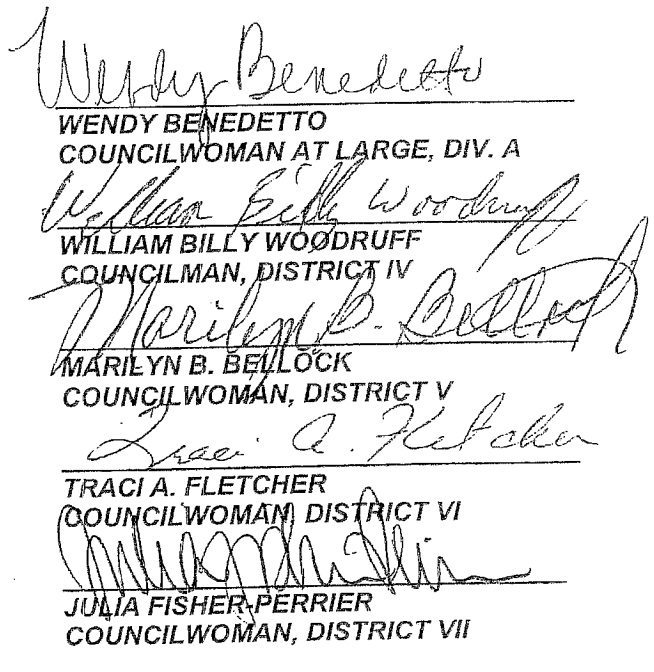 Wendy Benedetto
WENDY BENEDETTO
COUNCILWOMAN AT LARGE, DIV. A
William Billy Woodruff
WILLIAM BILLY WOODRUFF
COUNCILMAN, DISTRICT IV
Marilyn B. Bellock
MARILYN B. BELLOCK
COUNCILWOMAN, DISTRICT V
Traci A. Fletcher
TRACI A. FLETCHER
COUNCILWOMAN, DISTRICT VI
JULIA FISHER-PERRIER
COUNCILWOMAN, DISTRICT VII